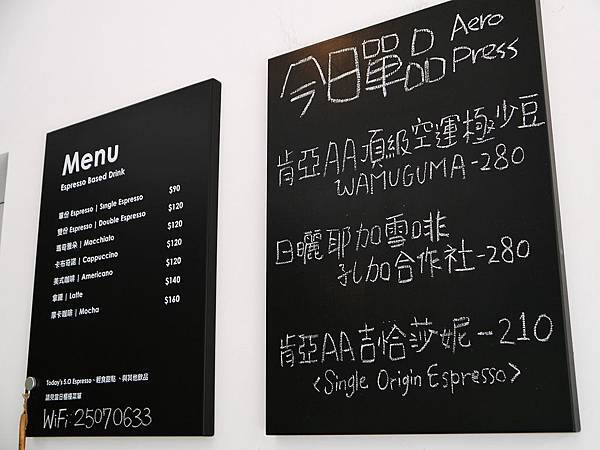 Menu
Espresso Based Drink
單份 Espresso | Single Espresso $90
雙份 Espresso | Double Espresso $120
瑪奇朵 | Macchiato $120
卡布奇諾 | Cappuccino $120
美式咖啡 | Americano $120
拿鐵 | Latte $140
摩卡咖啡 | Mocha $160
Today's S.O Espresso、輕食甜點、與其他飲品
請見當日櫃檯菜單
WiFi: 25070633
今日單品 Aero Press
肯亞AA頂級空運極少豆
WAMUGUMA-280
日曬耶加雪啡
孔加合作社-280
肯亞AA吉恰莎妮-210
<Single Origin Espresso>